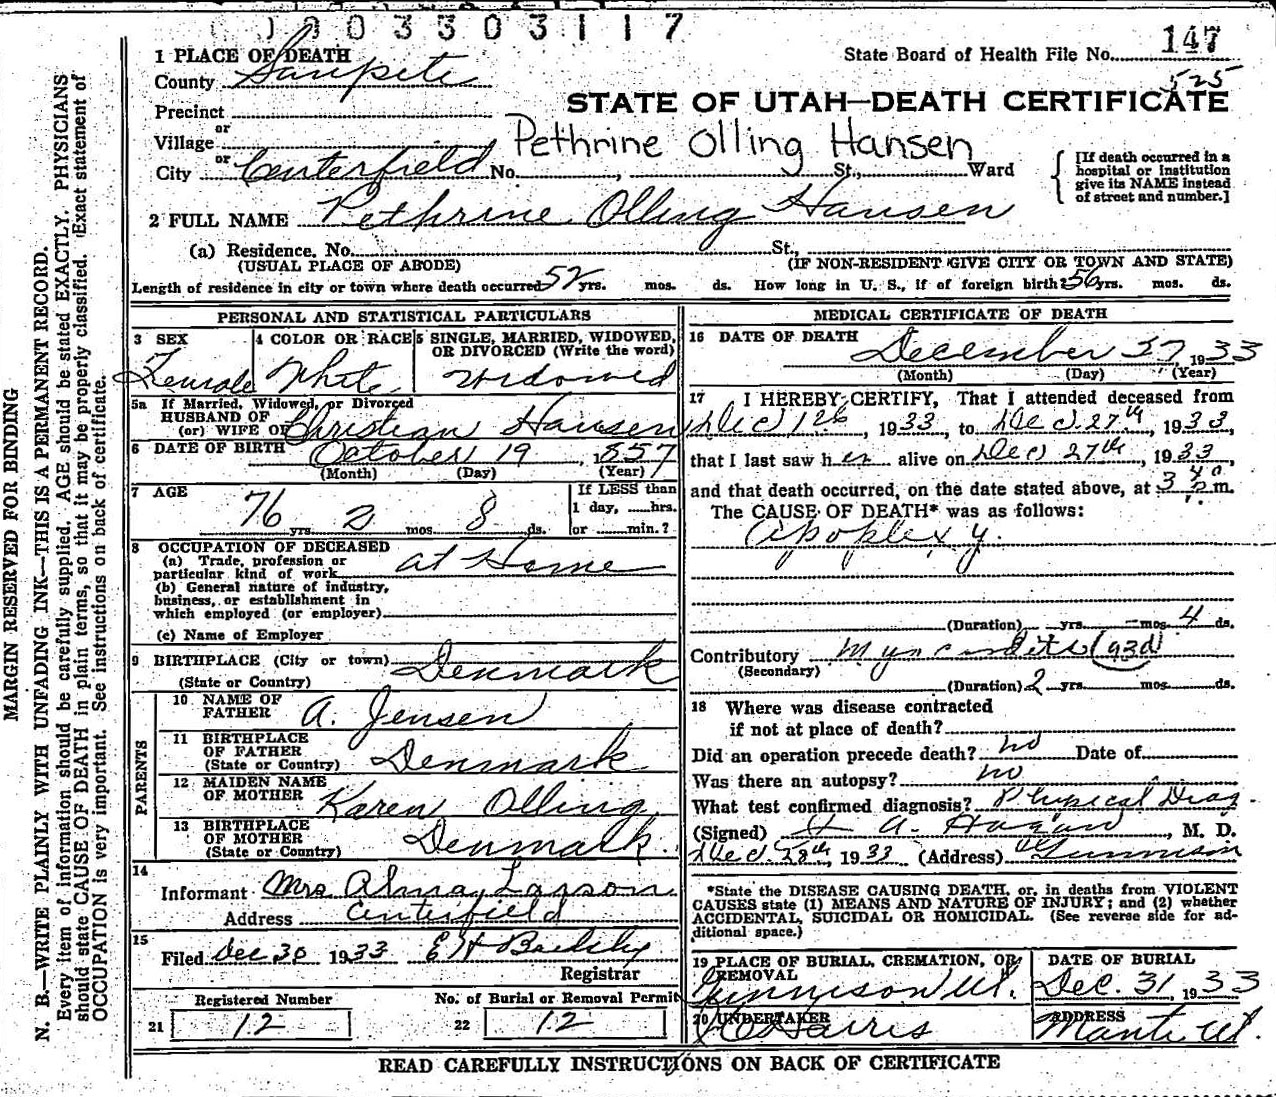 003303117
1 PLACE OF DEATH
State Board of Health File No. 147
County Sanpete
525
STATE OF UTAH—DEATH CERTIFICATE
Precinct
or
Village
Pethrine Olling Hansen
or
City Centerfield No. , St., Ward
[If death occurred in a
hospital or institution
give its NAME instead
of street and number.]
2 FULL NAME Pethrine Olling Hansen
(a) Residence. No. St.,
(USUAL PLACE OF ABODE) (IF NON-RESIDENT GIVE CITY OR TOWN AND STATE)
Length of residence in city or town where death occurred 52 yrs. mos. ds. How long in U. S., if of foreign birth? 56 yrs. mos. ds.
PERSONAL AND STATISTICAL PARTICULARS
3 SEX
Female
4 COLOR OR RACE
White
5 SINGLE, MARRIED, WIDOWED,
OR DIVORCED (Write the word)
Widowed
5a If Married, Widowed, or Divorced
HUSBAND OF
(or) WIFE OF Christian Hansen
6 DATE OF BIRTH October 19, 1857
(Month) (Day) (Year)
7 AGE
76 yrs. 2 mos. 8 ds.
If LESS than
1 day, hrs.
or min.?
8 OCCUPATION OF DECEASED
(a) Trade, profession or
particular kind of work at Home
(b) General nature of industry,
business, or establishment in
which employed (or employer)
(c) Name of Employer
9 BIRTHPLACE (City or town)
(State or Country) Denmark
PARENTS
10 NAME OF
FATHER A. Jensen
11 BIRTHPLACE
OF FATHER
(State or Country) Denmark
12 MAIDEN NAME
OF MOTHER Karen Olling
13 BIRTHPLACE
OF MOTHER
(State or Country) Denmark.
14
Informant Mrs Alma Larson
Address Centerfield
15
Filed Dec 30 1933 E H
Registrar
Registered Number
21 12
No. of Burial or Removal Permit
22 12
MEDICAL CERTIFICATE OF DEATH
16 DATE OF DEATH
December 27, 1933
(Month) (Day) (Year)
17 I HEREBY CERTIFY, That I attended deceased from
Dec 12th, 1933, to Dec 27th, 1933,
that I last saw her alive on Dec 27th, 1933,
and that death occurred, on the date stated above, at 3 m.
The CAUSE OF DEATH* was as follows:
Apoplexy.
(Duration) yrs. mos. 4 ds.
Contributory Myocarditis (93d)
(Secondary)
(Duration) 2 yrs. mos. ds.
18 Where was disease contracted
if not at place of death?
Did an operation precede death? no Date of
Was there an autopsy? no
What test confirmed diagnosis? Physical Diag.
(Signed) A. Hagan, M. D.
Dec. 28th, 1933 (Address) Gunnison
*State the DISEASE CAUSING DEATH, or, in deaths from VIOLENT
CAUSES state (1) MEANS AND NATURE OF INJURY; and (2) whether
ACCIDENTAL, SUICIDAL OR HOMICIDAL. (See reverse side for ad-
ditional space.)
19 PLACE OF BURIAL, CREMATION, OR
REMOVAL
Gunnison Ut.
DATE OF BURIAL
Dec. 31, 1933
20 UNDERTAKER
Harris
ADDRESS
Manti Ut.
READ CAREFULLY INSTRUCTIONS ON BACK OF CERTIFICATE
MARGIN RESERVED FOR BINDING
N. B.—WRITE PLAINLY WITH UNFADING INK—THIS IS A PERMANENT RECORD.
Every item of information should be carefully supplied. AGE should be stated EXACTLY. PHYSICIANS
should state CAUSE OF DEATH in plain terms, so that it may be properly classified. Exact statement of
OCCUPATION is very important. See instructions on back of certificate.